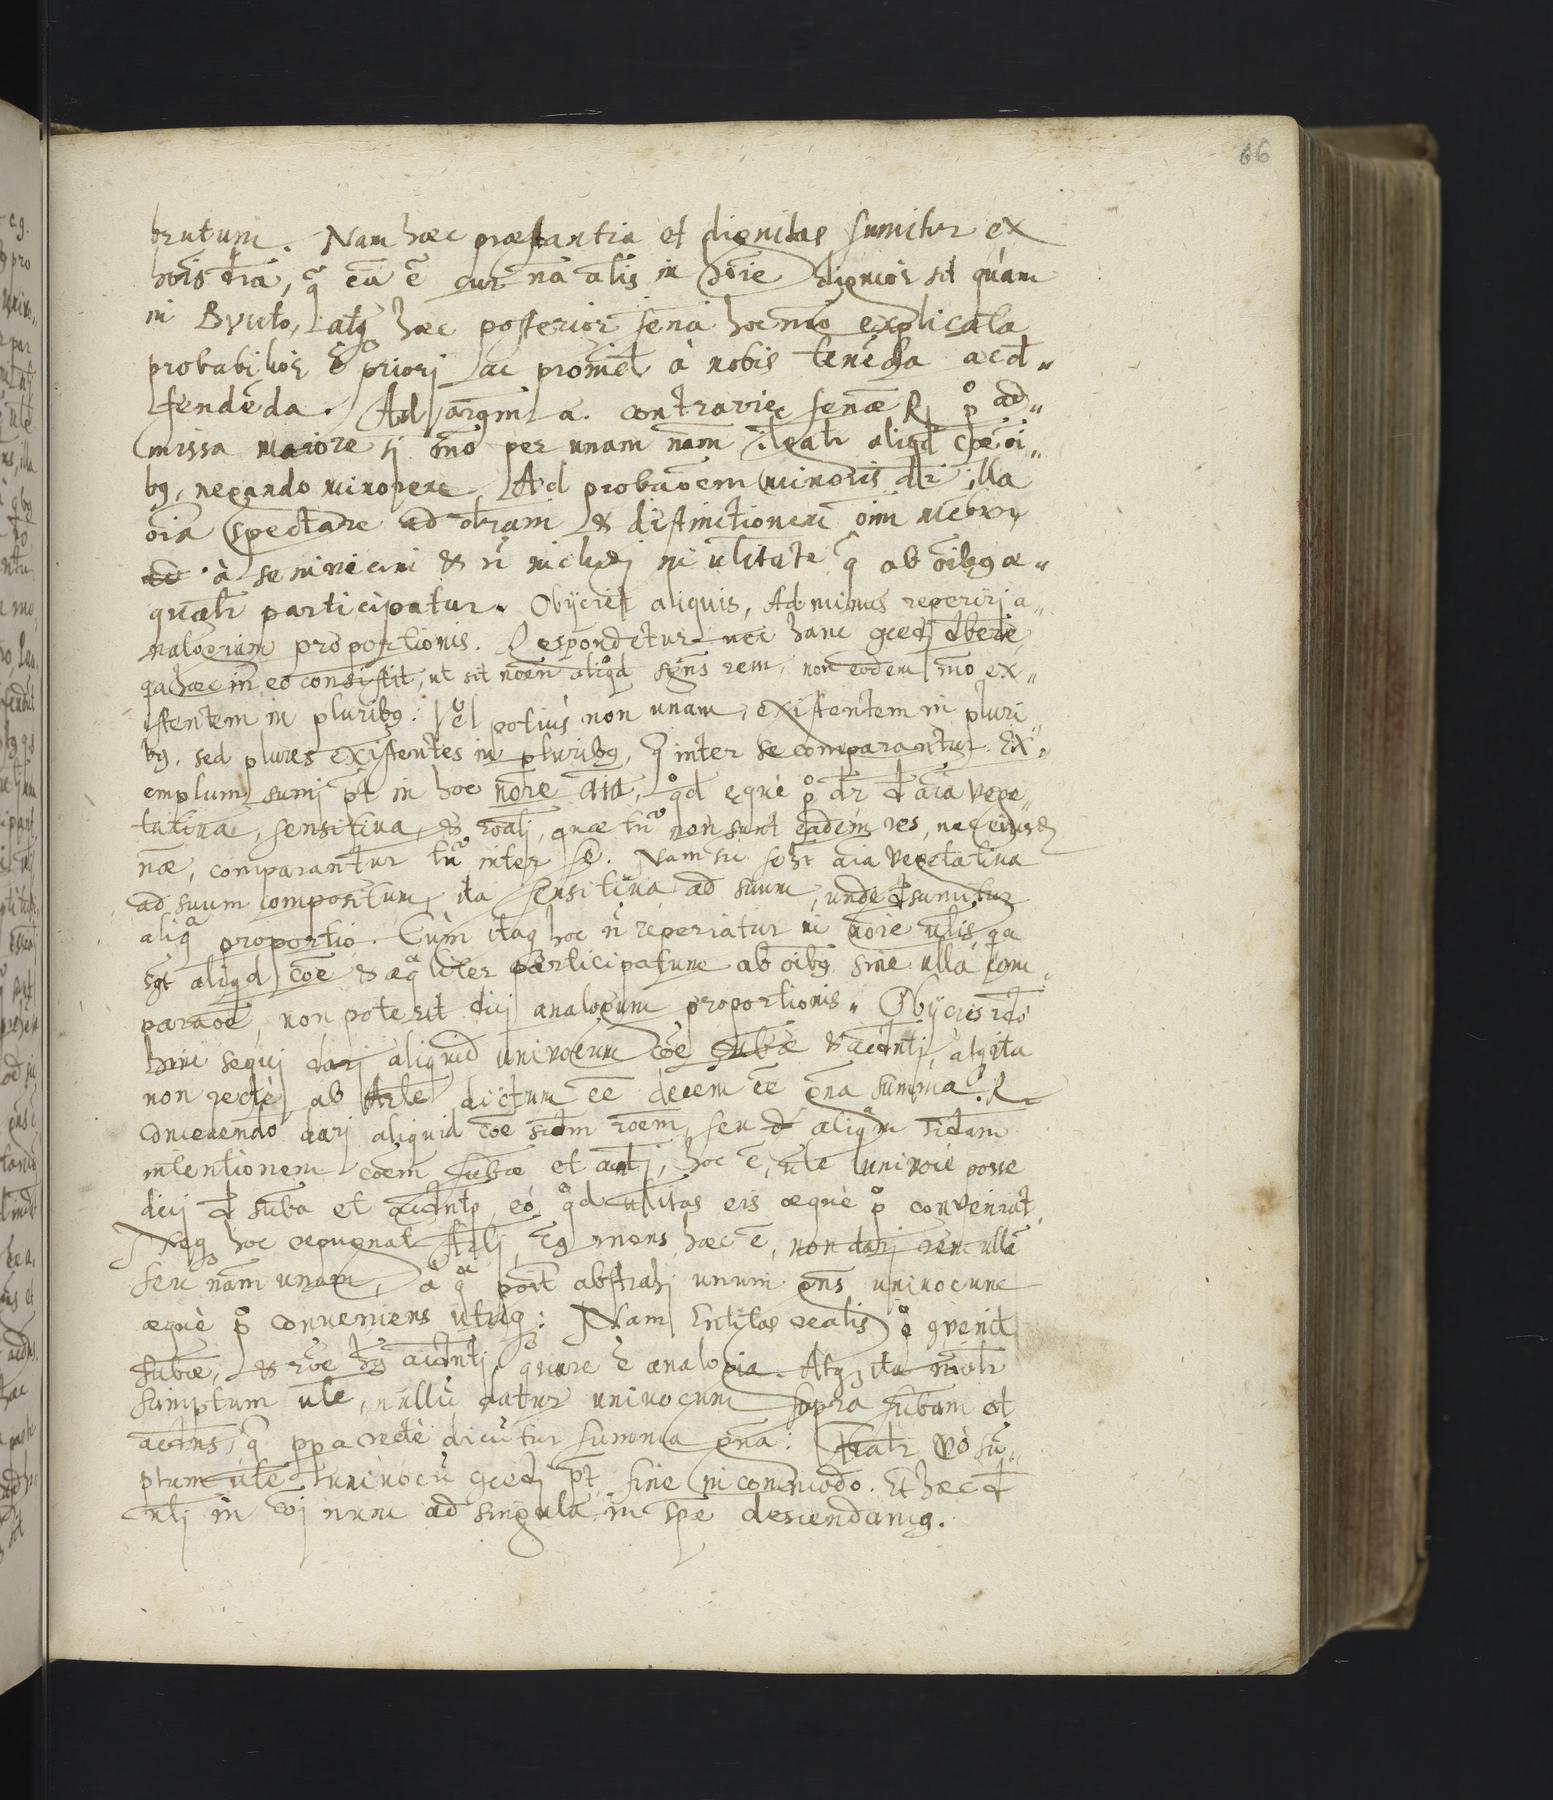 66
brutum. Nam hæc præstantia et dignitas sumitur ex
hois dr̃ia, q̃ ea ẽ cur nã alis in hoïe dignior sit quàm
in Bruto, atq; hæc posterior sen̄a hoc mõ explicata
probabilior ẽ priori ac proinde à nobis tenẽda ac d„
fendẽda. Ad argm̃ta contrariæ sen̄æ R p̊ ad„
missa maiore si om̃o per unam nãm aliqd cõe oi„
bq, negando minorem. Ad probaõem minoris dr̃ illa
oĩa spectare ad dr̃am & distinctionem oĩm mẽbrorũ
à se invicem & ñ includi in ulitate q̃ ab oĩbq æ„
qualr participatur. Obijciet aliquis, Ad minus reperiri a„
nalogiam proportionis. Respondetur nec hanc gcedi dbere
qa hæc in eo consistit, ut sit nõen aliqd sgñs rem, non eodem mõ ex„
istentem in pluribq: Vel potius non unam, existentem in pluri„
bq, sed plures existentes in pluribq, q̃ inter se comparantur. Ex„
emplum sumi pt̃ in hoc nõre aĩa, qd̊ æquè p̊ dr̃ d aĩa vege„
tatiua, sensitiua, & rõali, quæ tñ non sunt eadem res, nec eiusd
næ, comparantur tñ inter se. Nam sic se ht aĩa vegetatiua
ad suum compositum, ita sensitiua ad suum, unde dsumitur
aliqᵃ proportio. Cùm itaq hoc ñ reperiatur in noïe ulis, qa
sgt aliqd cõe & æqᵃliter participatum ab oĩbq sine ulla com„
paraõe, non poterit dici analogum proportionis. Obijcies 2do
hinc sequi dari aliquid univocum cõe subæ & acdnti, atq ita
non rectè ab Arle dictum ẽe decem ẽe gña summa? R
concedendo dari aliquid cõe scdm rõem, seu d aliqᵃm 2dam
intentionem cõem subæ et acnti, hoc ẽ, ule univoce posse
dici d suba et acdnti, eò qd̊ ulitas eis æquè p̊ conveniat.
Neq; hoc repugnat Arli, Eg mens hæc ẽ, non dari rem ullã
seu nãm unam, à qᵃ poit abstrahi unum ens univocum
æquè p̊ conveniens utriq;: Nam Entitas realis p̊ gvenit
subæ, & rõe hq acdnti, quare ẽ analogia. Atq; ita mãlr
sumptum ule, nullũ datur univocum supra subam et
acdns, q̃ ppᵃ rectè dicũtur summa gña: Fralr vò sũ„
ptum ule univocũ gcedi pt̃ sine incommodo. Et hæc d
uli in coi nunc ad singula in spẽ descendamq.